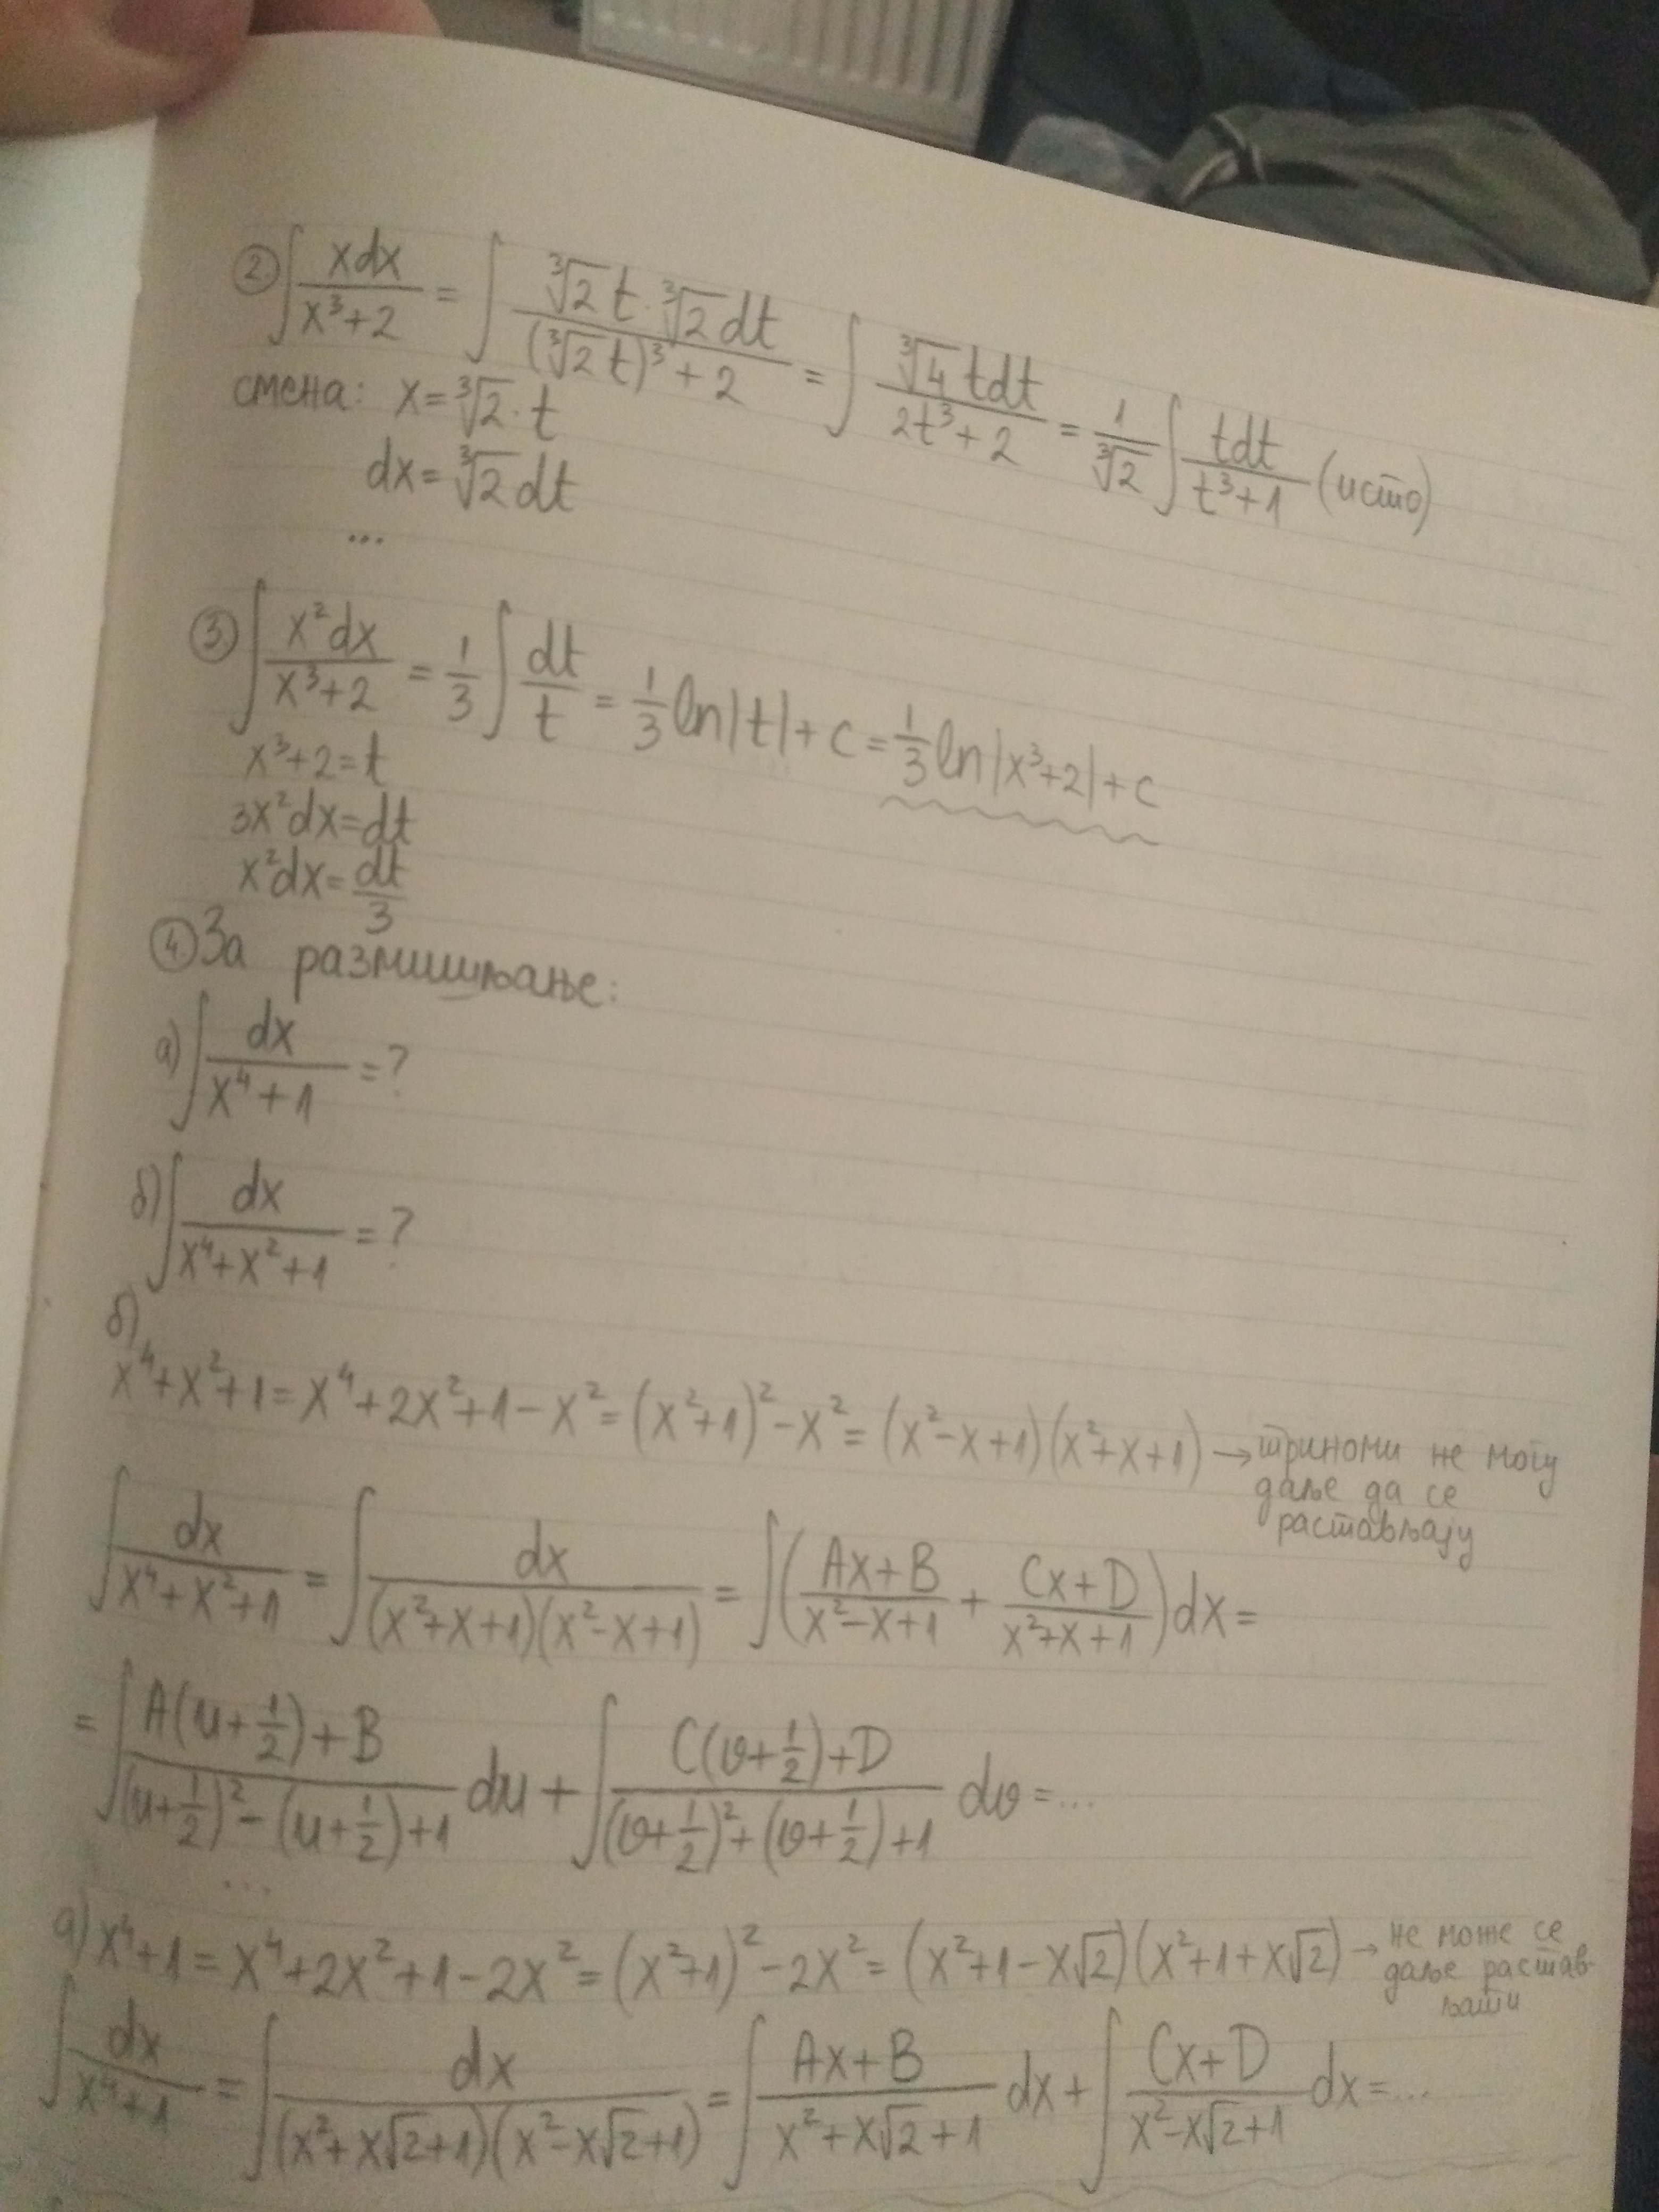 ② ∫ xdx/(x³+2) = ∫ (∛2 t · ∛2 dt)/((∛2 t)³+2) = ∫ (∛4 tdt)/(2t³+2) = 1/∛2 ∫ tdt/(t³+1) (исто)
смена: x=∛2 · t
dx=∛2 dt
...
③ ∫ x²dx/(x³+2) = 1/3 ∫ dt/t = 1/3 ln|t|+c = 1/3 ln|x³+2|+c
x³+2=t
3x²dx=dt
x²dx=dt/3
④ За размишљање:
а) ∫ dx/(x⁴+1) =?
б) ∫ dx/(x⁴+x²+1) =?
б)
x⁴+x²+1 = x⁴+2x²+1-x² = (x²+1)²-x² = (x²-x+1)(x²+x+1) → триноми не могу
даље да се
растављају
∫ dx/(x⁴+x²+1) = ∫ dx/((x²+x+1)(x²-x+1)) = ∫ ((Ax+B)/(x²-x+1) + (Cx+D)/(x²+x+1)) dx =
= ∫ (A(u+1/2)+B)/((u+1/2)²-(u+1/2)+1) du + ∫ (C(v+1/2)+D)/((v+1/2)²+(v+1/2)+1) dv = ...
...
а) x⁴+1 = x⁴+2x²+1-2x² = (x²+1)²-2x² = (x²+1-x√2)(x²+1+x√2) → не може се
даље растав-
љати
∫ dx/(x⁴+1) = ∫ dx/((x²+x√2+1)(x²-x√2+1)) = ∫ (Ax+B)/(x²+x√2+1) dx + ∫ (Cx+D)/(x²-x√2+1) dx = ...